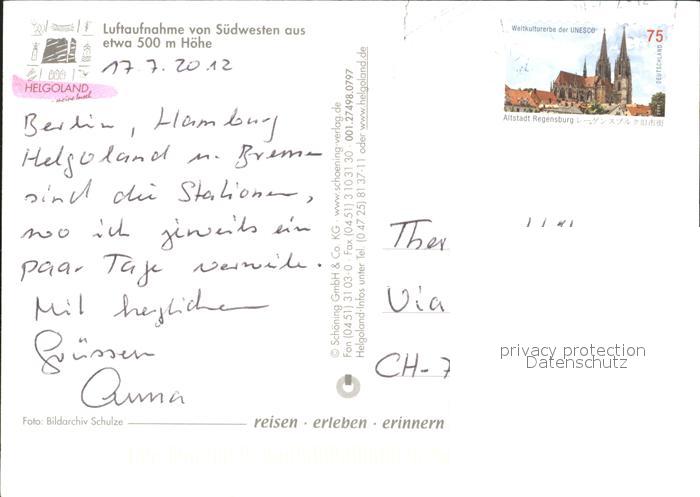 Luftaufnahme von Südwesten aus
etwa 500 m Höhe
HELGOLAND
17.7.2012
Berlin, Hamburg
Helgoland u. Bremen
sind die Stationen,
wo ich jeweils ein
paar Tage verweile.
Mit herzlichen
Grüssen
Anna
Foto: Bildarchiv Schulze
reisen · erleben · erinnern
© Schöning GmbH & Co. KG · www.schoening-verlag.de
Fon (04 51) 31 03-0 · Fax (04 51) 3 10 31 30 · 001.27498.0797
Helgoland-Infos unter Tel. (0 47 25) 81 37-11 oder www.helgoland.de
Weltkulturerbe der UNESCO
75
DEUTSCHLAND
Altstadt Regensburg レーゲンスブルク旧市街
Ther
Via
CH-7
privacy protection
Datenschutz